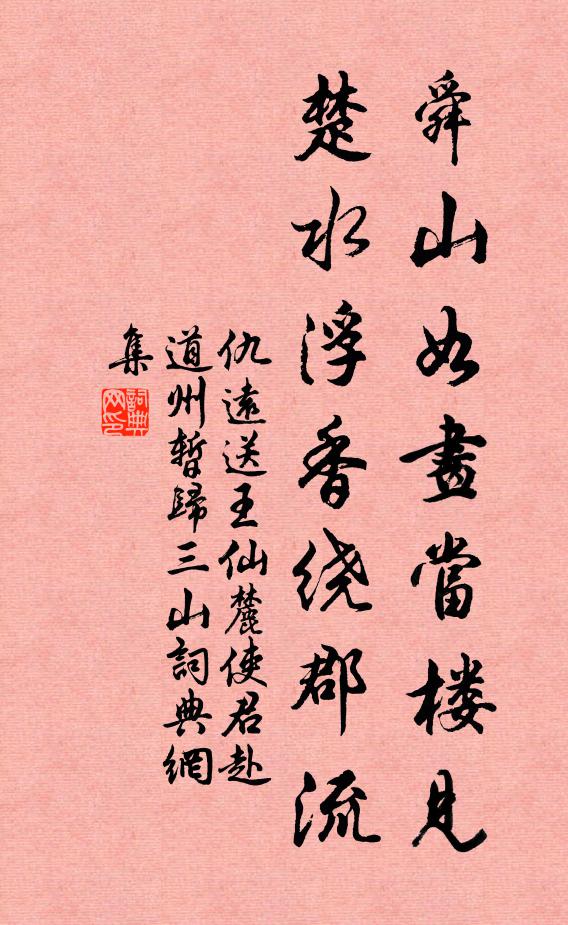 舜山如畫當楼見
楚水浮香绕郡流
仇遠送王仙麓使君赴
道州暫歸三山詞典網
集
詞典
网印